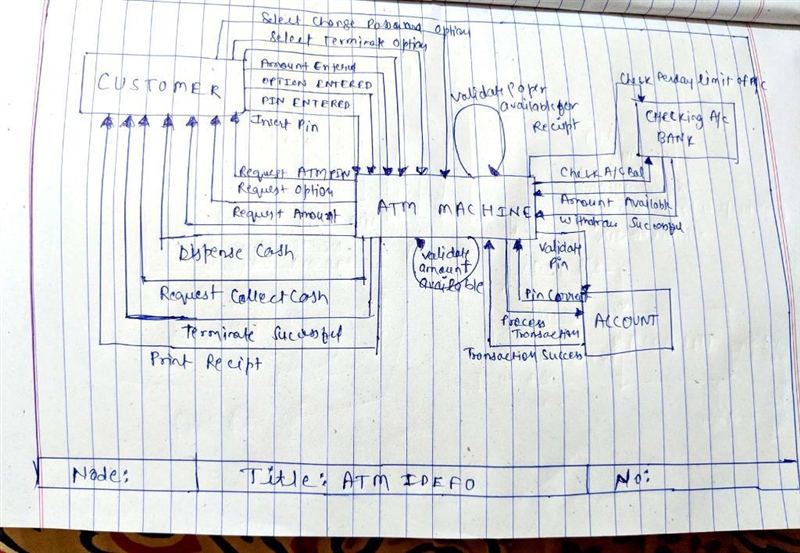 Select Change Password Option
Select Terminate Option
Amount Entered
OPTION ENTERED
PIN ENTERED
Insert Pin
CUSTOMER
Validate Paper
available for
Receipt
Check Perday limit of A/c
CHECKING A/c
BANK
Check A/c Bal
Amount Available
Withdraw Successful
Request ATM PIN
Request Option
Request Amount
ATM MACHINE
Dispense Cash
Request Collect Cash
Terminate Sucessful
Print Receipt
Validate
amount
available
Validate
Pin
Pin Correct
Process
Transaction
Transaction Success
ACCOUNT
Node:
Title: ATM IDEF0
No: